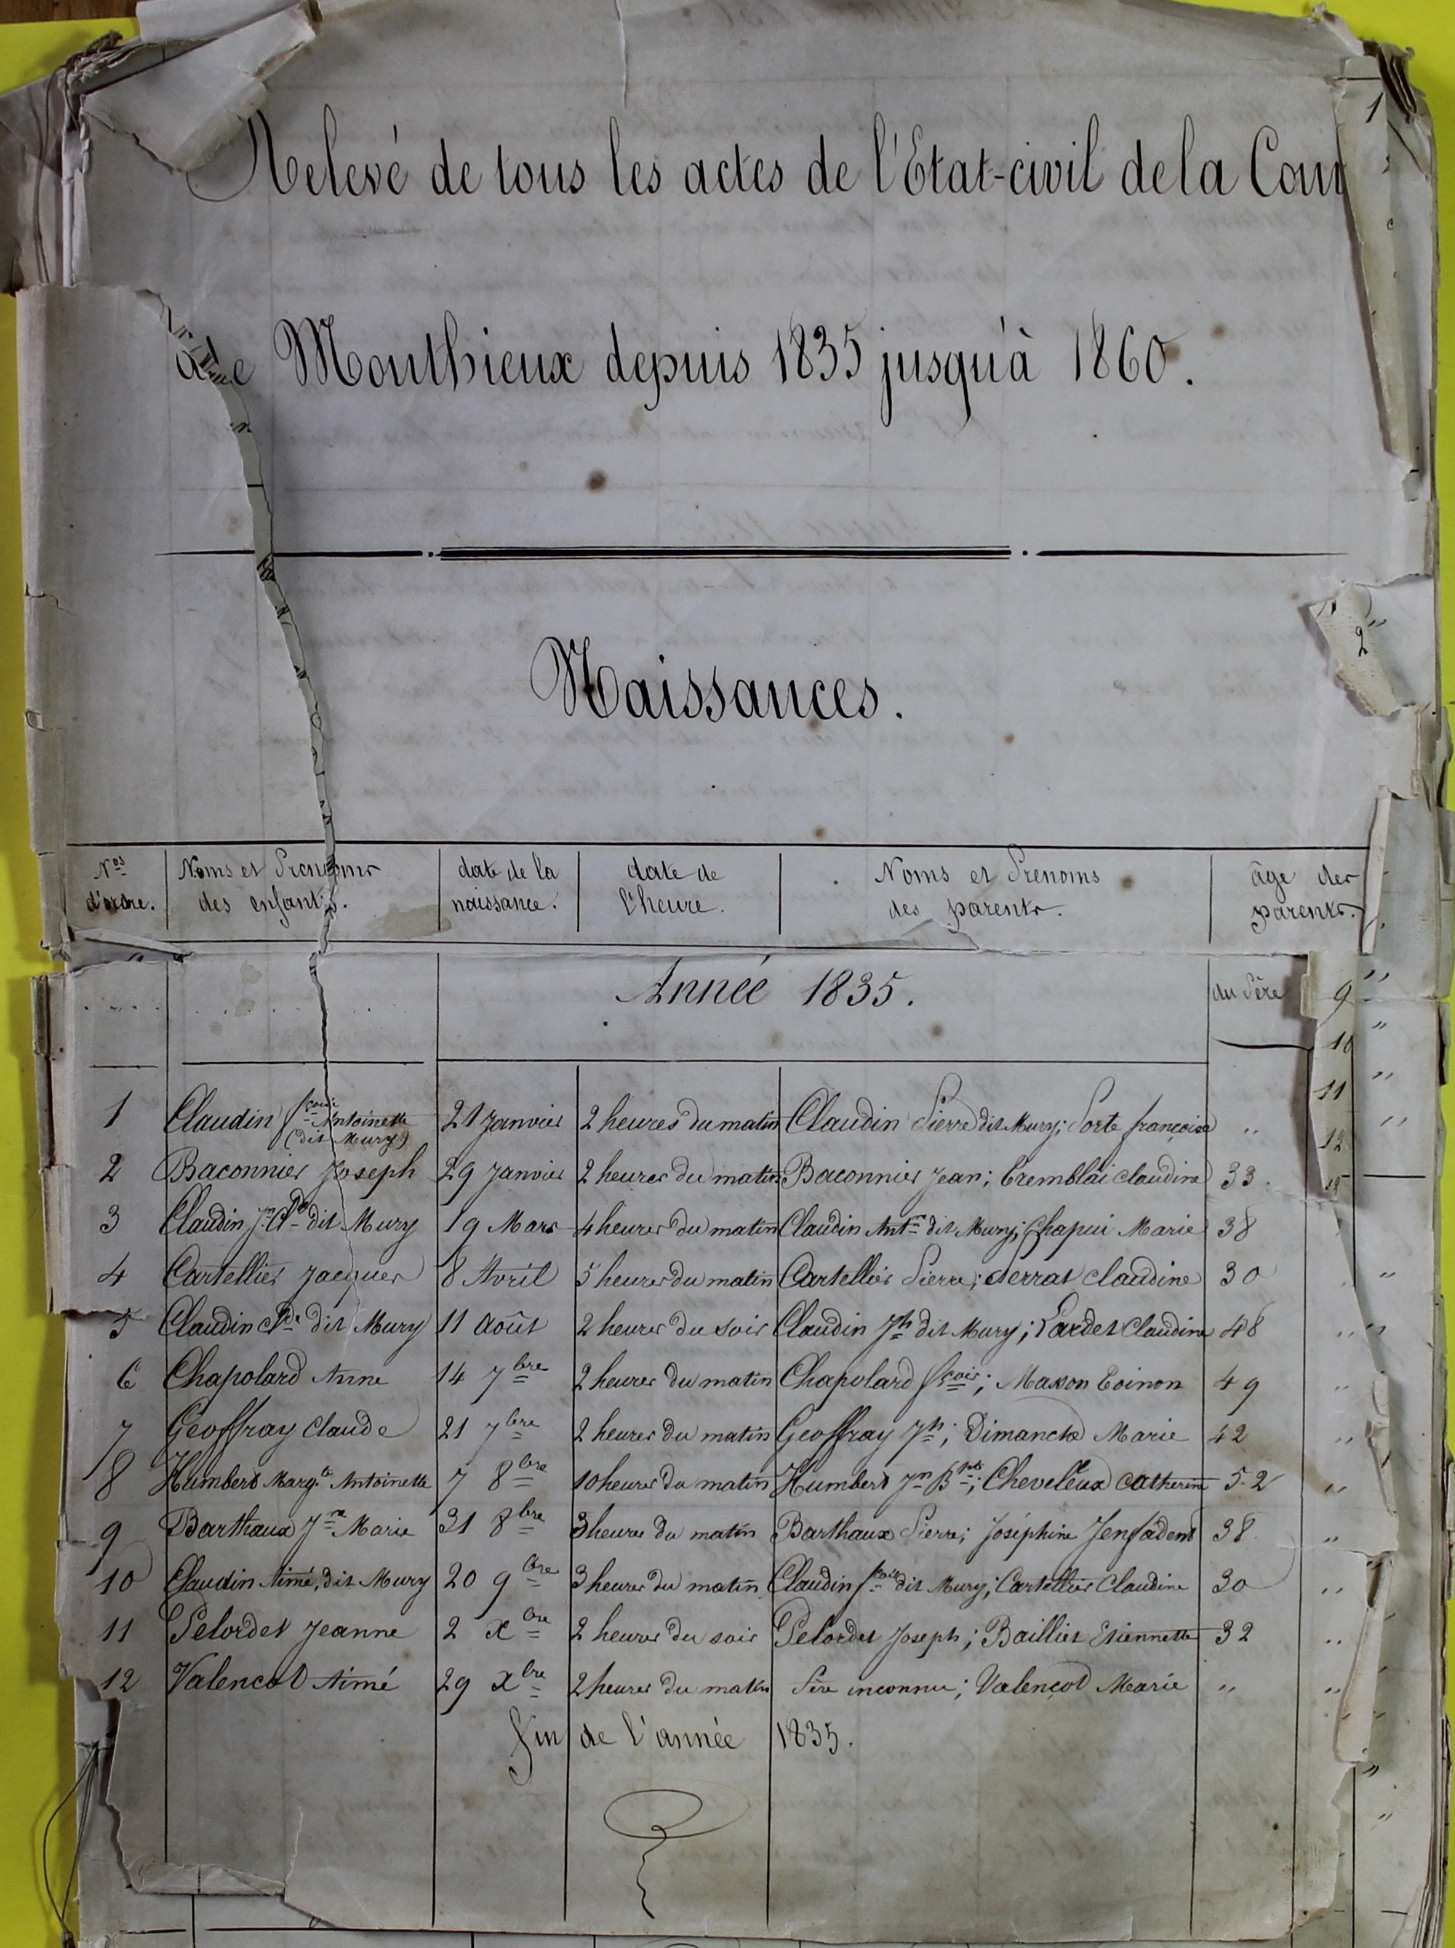 Relevé de tous les actes de l'Etat-civil de la Com
de Monthieux depuis 1835 jusqu'à 1860.
Naissances.
Nos d'ordre. Noms et Prenoms des enfants. date de la naissance. date de l'heure. Noms et Prenoms des parents. âge des parents.
Année 1835. du Père
1 Claudin fcoise Antoinette (dit Mury) 21 Janvier 2 heures du matin Claudin Pierre dit Mury; Porte françoise "
2 Baconnier Joseph 29 Janvier 2 heures du matin Baconnier Jean; Tremblai Claudine 33.
3 Claudin Jn Cde dit Mury 19 Mars 4 heures du matin Claudin Antne dit Mury; Chapui Marie 38
4 Cartellier Jacques 8 Avril 5 heures du matin Cartellier Pierre; Serrat Claudine 30
5 Claudin Cde dit Mury 11 Août 2 heures du soir Claudin Jh dit Mury; Lardet Claudine 48
6 Chapolard Anne 14 7bre 2 heures du matin Chapolard fcois; Maxon Toinon 49
7 Geoffray Claude 21 7bre 2 heures du matin Geoffray Jh; Dimanche Marie 42
8 Humbert Margte Antoinette 7 8bre 10 heures du matin Humbert Jn Bpte; Cheveleux Catherine 52
9 Barthaux Jne Marie 31 8bre 3 heures du matin Barthaux Pierre; Joséphine 38
10 Claudin Aimé, dit Mury 20 9bre 3 heures du matin Claudin fcois dit Mury; Cartellier Claudine 30
11 Pelordet Jeanne 2 xbre 2 heures du soir Pelordet Joseph; Baillier Etiennette 32
12 Valencot Aimé 29 xbre 2 heures du matin Père inconnu; Valençot Marie "
fin de l'année 1835.
1
2
9
10
11
12